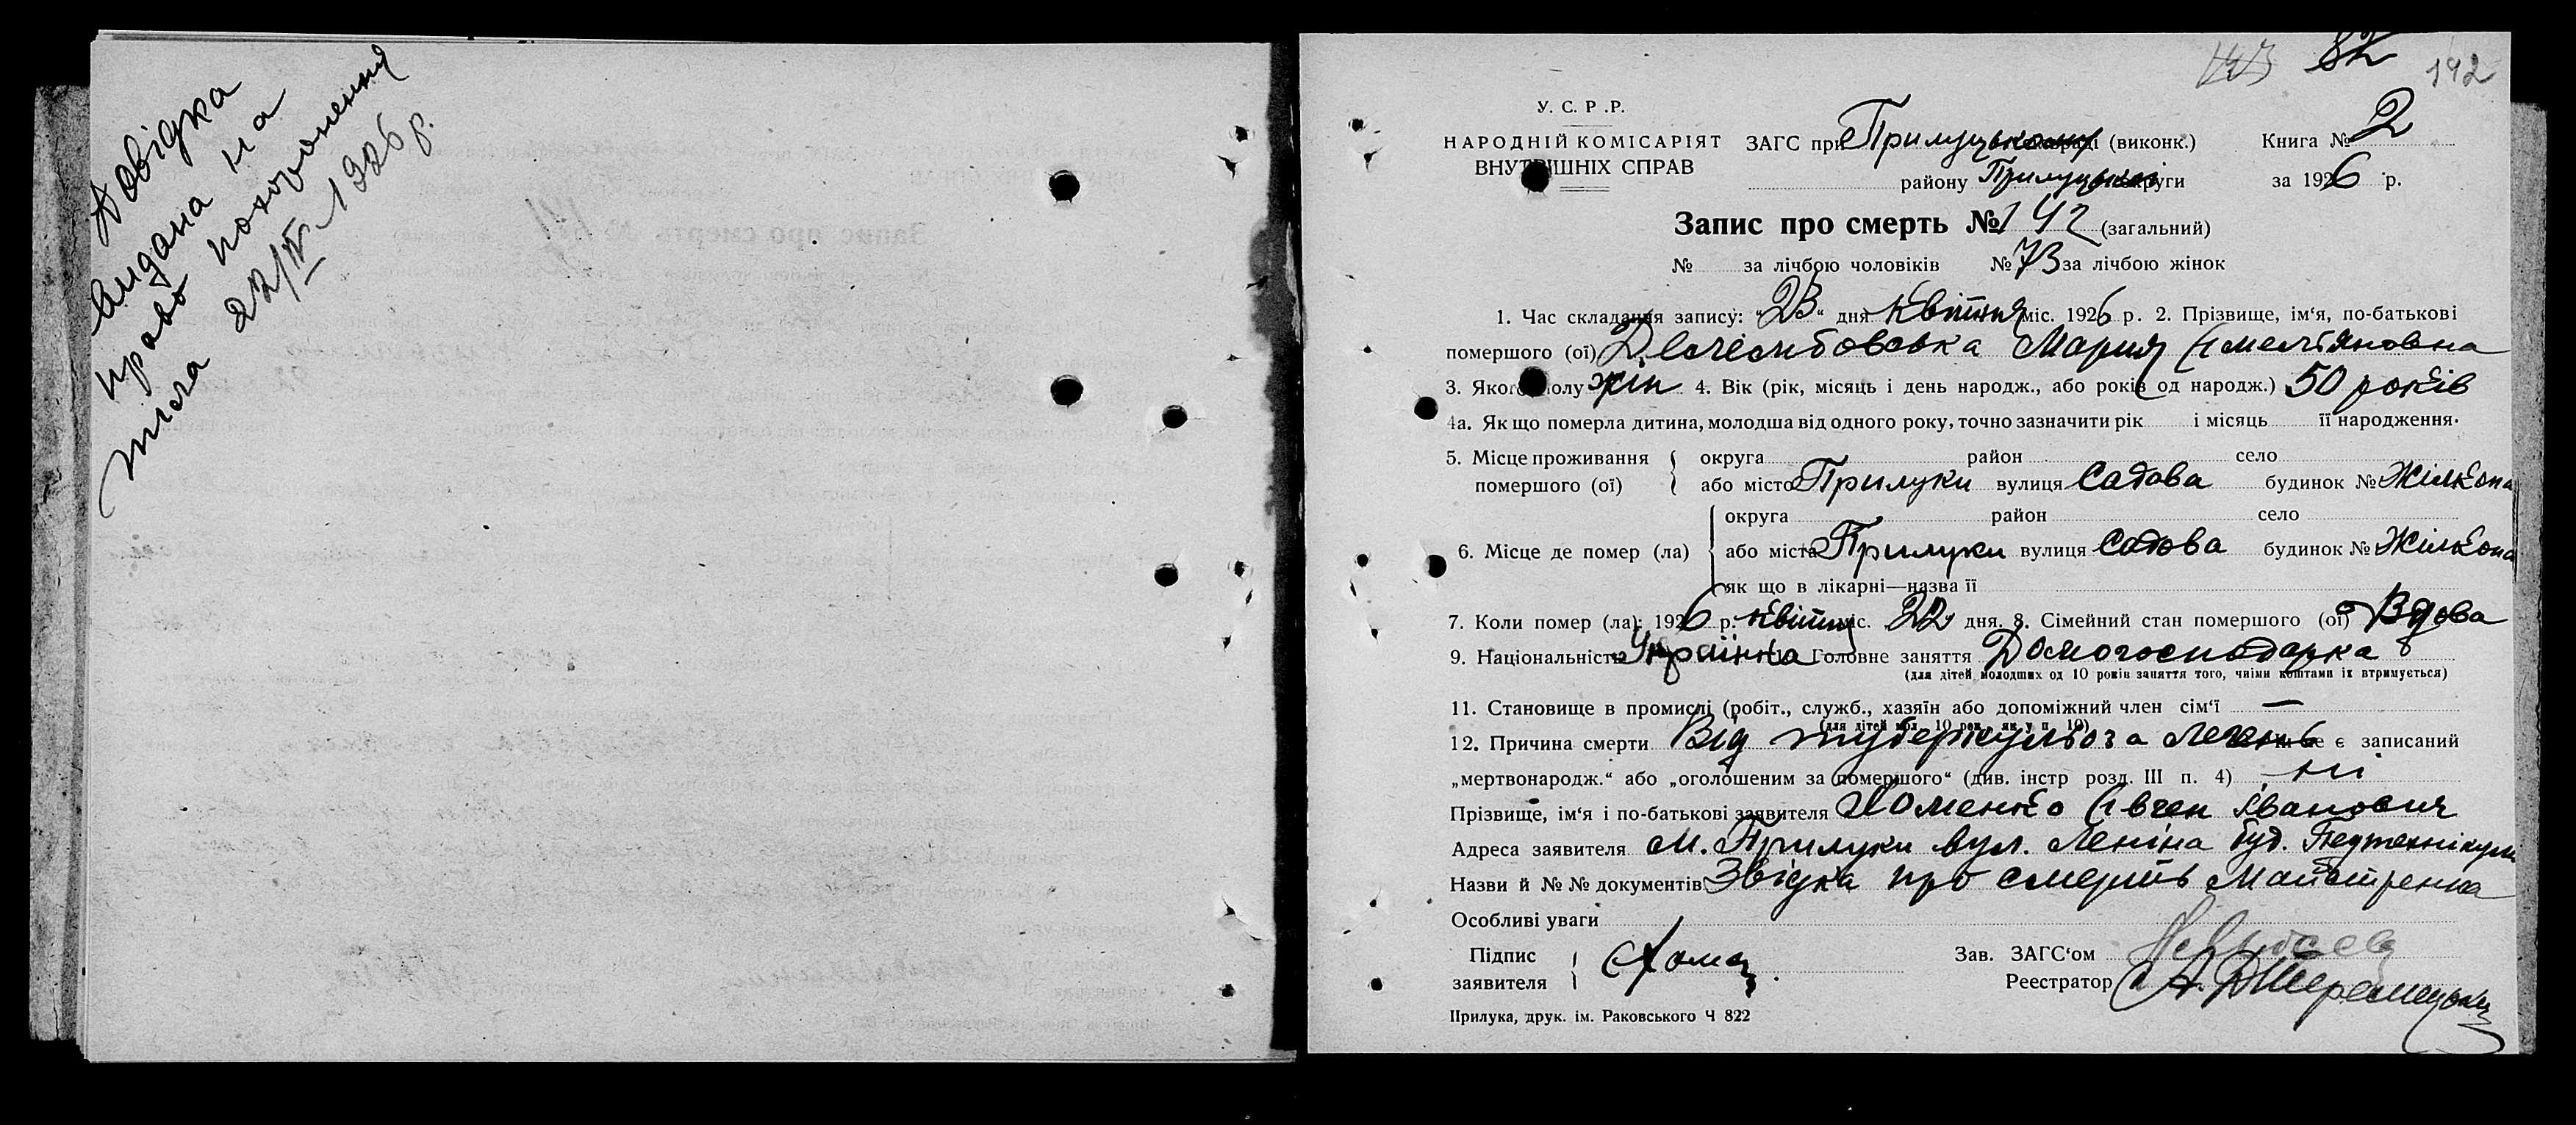 Довідка
видана на
право похоронення
тіла 22/IV-1926 р.
82
142
У. С. Р .Р.
НАРОДНІЙ КОМІСАРІЯТ
ВНУТРІШНІХ СПРАВ
ЗАГС при Прилуцькому раді (виконк.)
району Прилуцької округи
Книга № 2
за 1926 р.
Запис про смерть № 142 (загальний)
№ за лічбою чоловіків № 73 за лічбою жінок
1. Час складання запису: "23" дня Квітня міс. 1926 р. 2. Прізвище, ім'я, по-батькові
помершого (ої) Мария Омельяновна
3. Якого полу жін 4. Вік (рік, місяць і день народж., або років од народж.) 50 років
4а. Як що померла дитина, молодша від одного року, точно зазначити рік і місяць її народження.
5. Місце проживання
помершого (ої)
округа район село
або місто Прилуки вулиця Садова будинок № Жілкопа
6. Місце де помер (ла)
округа район село
або міста Прилуки вулиця Садова будинок № Жілкопа
як що в лікарні—назва її
7. Коли помер (ла): 1926 р. квітня міс. 22 дня. 8. Сімейний стан помершого (ої) Вдова
9. Національність Українка 10. Головне заняття Домогосподарка
(для дітей молодших од 10 років заняття того, чиїми коштами їх втримується)
11. Становище в промислі (робіт., служб., хазяїн або допоміжний член сім'ї —
(для дітей мол. 10 рок., як у п. 10)
12. Причина смерти Від туберкульоза легень чи не є записаний
„мертвонародж." або „оголошеним за помершого" (див. інстр розд. III п. 4) ні
Прізвище, ім'я і по-батькові заявителя Хоменко Євген Іванович
Адреса заявителя м. Прилуки вул. Леніна буд. Педтехнікум
Назви й №№ документів Звідка про смерть Майстренка
Особливі уваги
Підпис
заявителя
Хомен
Зав. ЗАГС'ом
Реестратор
Прилука, друк. ім. Раковського Ч 822